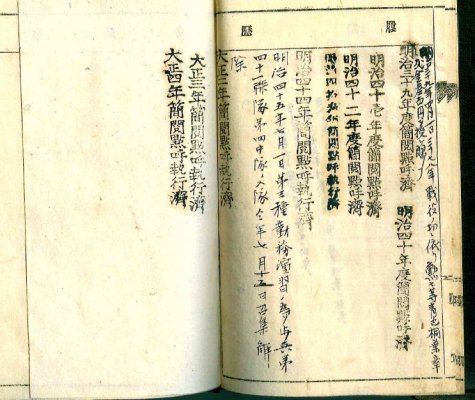 履歴
年戦役ノ功ニ依リ勲八等青色桐葉章
明治三十九年度簡閲點呼済
明治四十年度簡閲點呼済
明治四十壱年度簡閲點呼済
明治四十二年度簡閲點呼済
簡閲點呼執行済
明治四十四年簡閲點呼執行済
明治四十五年七月一日第三種勤務演習ノ為歩兵第
四十一聯隊第四中隊ヘ入隊仝年七月十五日召集解
除
大正二年簡閲點呼執行済
大正三年簡閲點呼執行済
大正四年簡閲點呼執行済